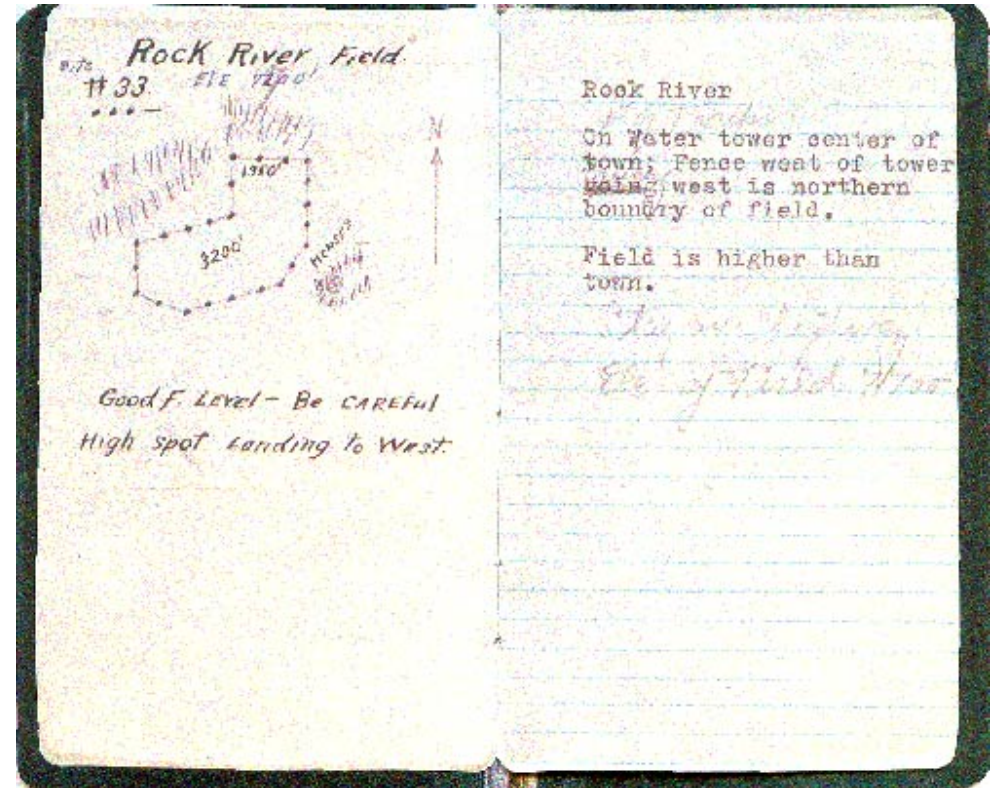 Rock River Field
Site
# 33
ElE 7200'
N
1950'
3200'
Good F. Level - Be CAREFul
High spot Landing to West.
Rock River
On Water tower center of
town; Fence west of tower
going west is northern
boundry of field.
Field is higher than
town.